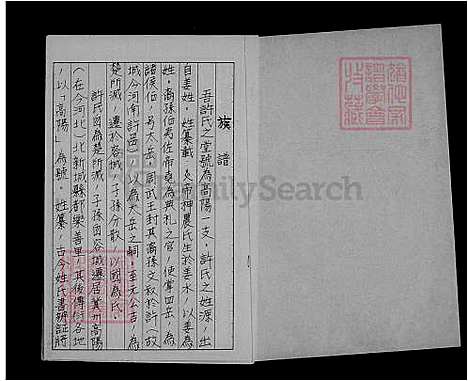 族譜
吾許氏之堂號為高陽一支，許氏之姓源，出
自姜姓。姓纂載：炎帝神農氏生於姜水，以姜為
姓，裔孫伯夷佐帝堯為典禮之官，使掌四岳，為
諸侯伯，号太岳，周武王封其裔孫文叔於許（故
城今河南許邑）以為太岳之嗣，至元公吉，為
楚所滅，遷於容城，子孫分散，以國為氏。
許氏因為楚所滅，子孫因容城遷居冀州高陽
（在今河北、北新城縣都樂善里，其後傳衍各地
，以「高陽」為號。姓纂，古今姓氏書辨証將
FamilySearch